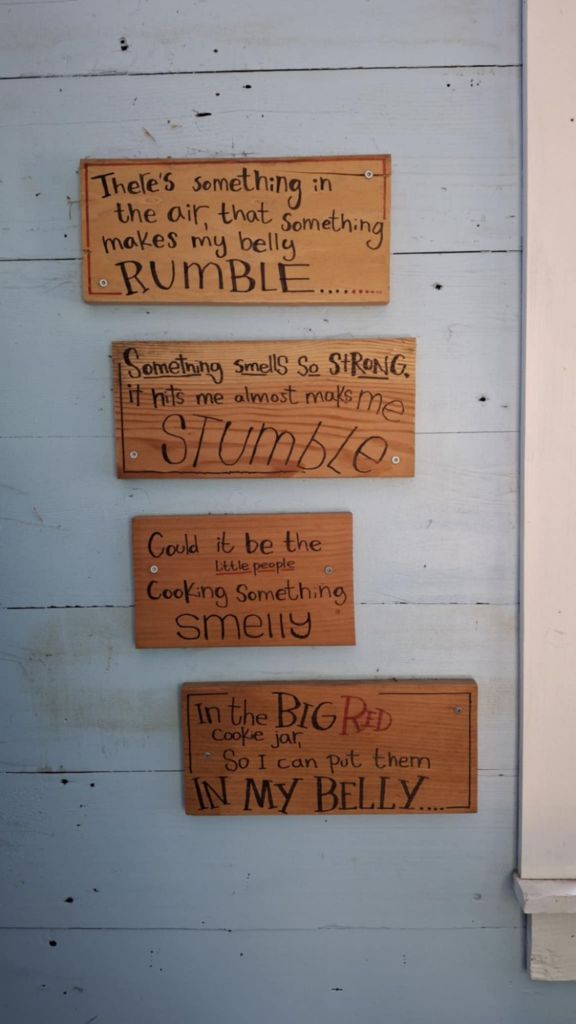 There's something in
the air, that something
makes my belly
RUMBLE.........
Something smells so STRONG.
it hits me almost maks me
STUMBLE
Could it be the
little people
Cooking Something
smelly
In the BIG RED
cookie jar,
So I can put them
IN MY BELLY....